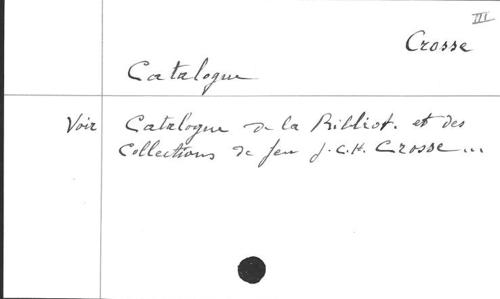 III
Crosse
Catalogue
Voir Catalogue de la Bibliot. et des
Collections de feu J.C.H. Crosse...